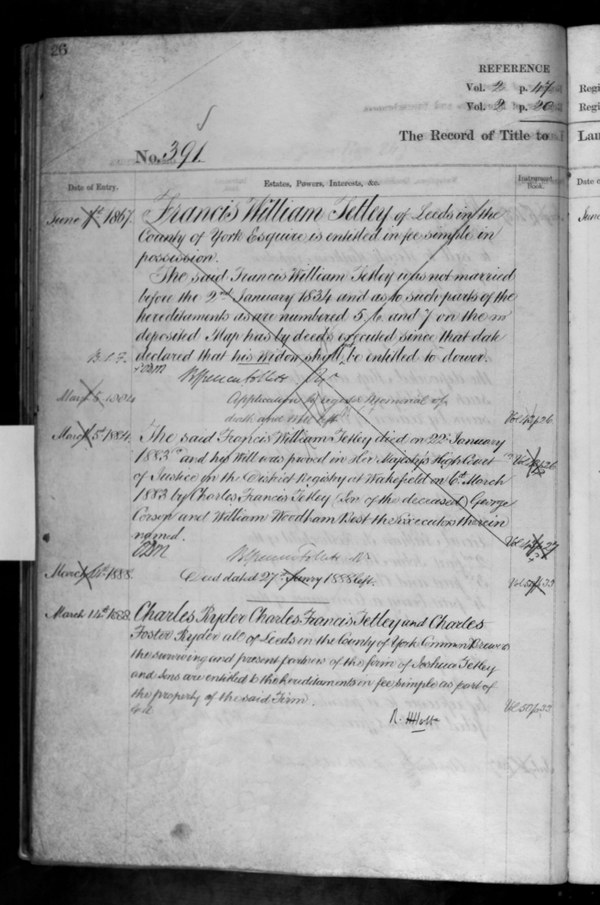 26
REFERENCE
Vol. 2 p. 47
Vol. 2 p. 20
Regi
Regi
The Record of Title to
Lan
No. 391.
Date of Entry.
Estates, Powers, Interests, &c.
Instrument Book.
Date o
June 1867.
Francis William Tetley of Leeds in the
County of York Esquire is entitled in fee simple in
possession.
The said Francis William Tetley was not married
before the 2nd January 1834 and as to such parts of the
hereditaments as are numbered 5, 6 and 7 on the
deposited Map has by deeds executed since that date
declared that his Widow shall be entitled to dower.
March 5, 1884
Application to register Memorial of
death and Will left.
Vol 42 p 26
March 5th 1884.
The said Francis William Tetley died on 22nd January
1883 and his Will was proved in Her Majesty's High Court
of Justice in the District Registry at Wakefield on 6th March
1883 by Charles Francis Tetley (Son of the deceased) George
Corson and William Woodham Best the Executors therein
named.
March 1888.
Deed dated 27th Janry 1888 left.
March 14th 1888.
Charles Ryder Charles Francis Tetley and Charles
Foster Ryder all of Leeds in the County of York Common Brewers
the surviving and present partners of the firm of Joshua Tetley
and Sons are entitled to the hereditaments in fee simple as part of
the property of the said Firm.
Vol 50 p 33